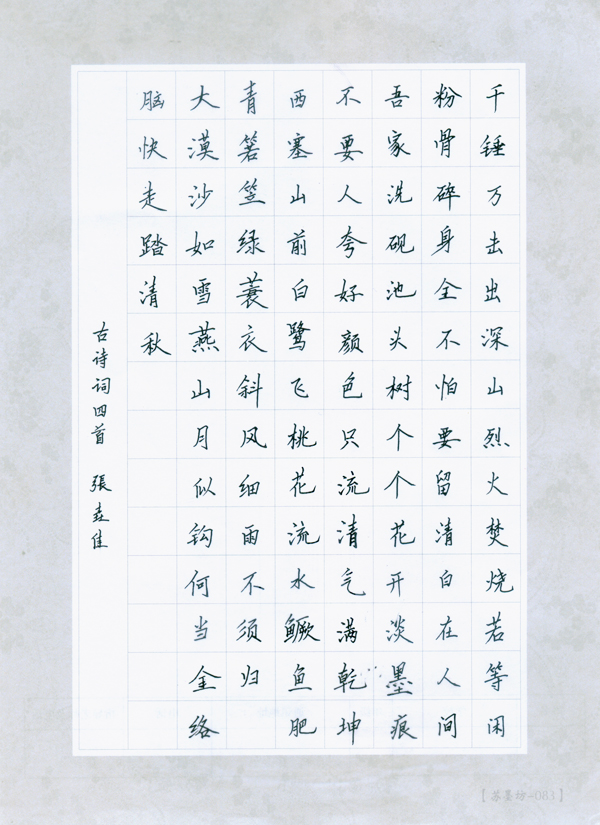 千锤万击出深山烈火焚烧若等闲
粉骨碎身全不怕要留清白在人间
吾家洗砚池头树个个花开淡墨痕
不要人夸好颜色只流清气满乾坤
西塞山前白鹭飞桃花流水鳜鱼肥
青箬笠绿蓑衣斜风细雨不须归
大漠沙如雪燕山月似钩何当金络
脑快走踏清秋
古诗词四首 張垚佳
【苏墨坊-083】